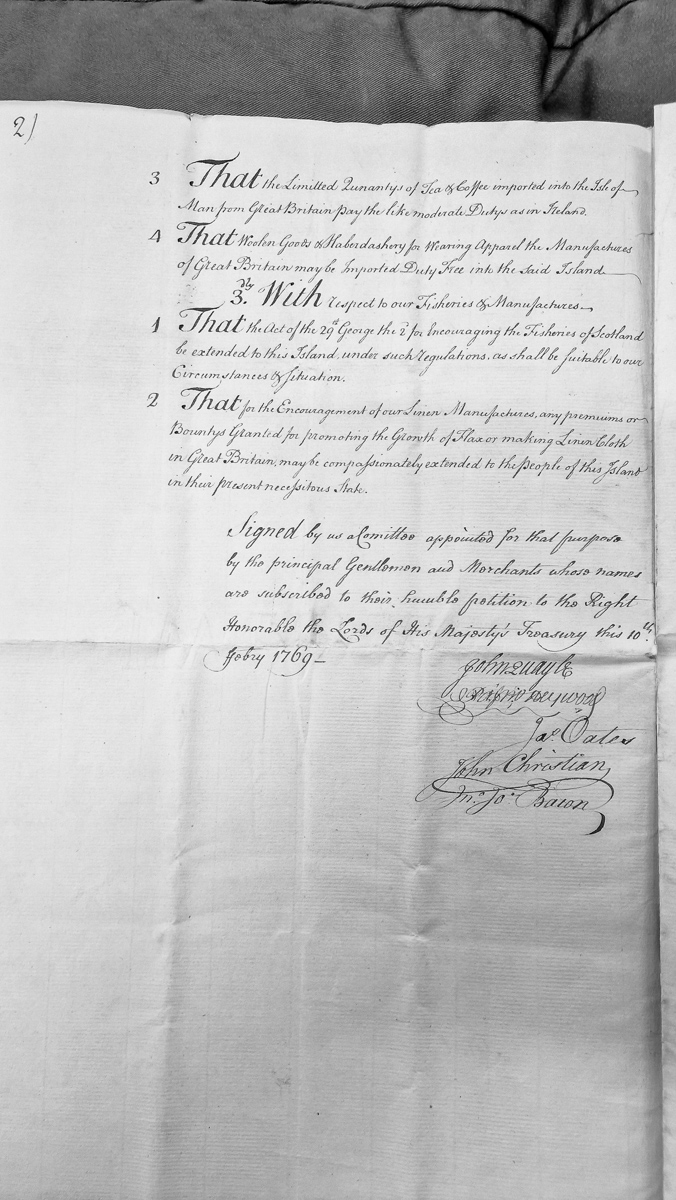 2)
3 That the Limitted Qunantys of Tea & Coffee imported into the Isle of
Man from Great Britain pay the like moderate Dutys as in Ireland.
4 That Woolen Goods & Haberdashery for Wearing Apparel the Manufactures
of Great Britain may be Imported Duty Free into the Said Island
3.ly With respect to our Fisheries & Manufactures
1 That the Act of the 29th George the 2d for Encouraging the Fisheries of Scotland
be extended to this Island, under such regulations, as shall be suitable to our
Circumstances & Situation.
2 That for the Encouragement of our Linen Manufactures, any premiums or
Bountys Granted for promoting the Growth of Flax or making Linen Cloth
in Great Britain, may be compassionately extended to the people of this Island
in their present necessitous State.
Signed by us a Comittee appointed for that purpose
by the principal Gentlemen and Merchants whose names
are subscribed to their humble petition to the Right
Honorable the Lords of His Majesty's Treasury this 10th
Febry 1769
John Quayle
Jas. Oates
John Christian
Jno. Jos. Bacon